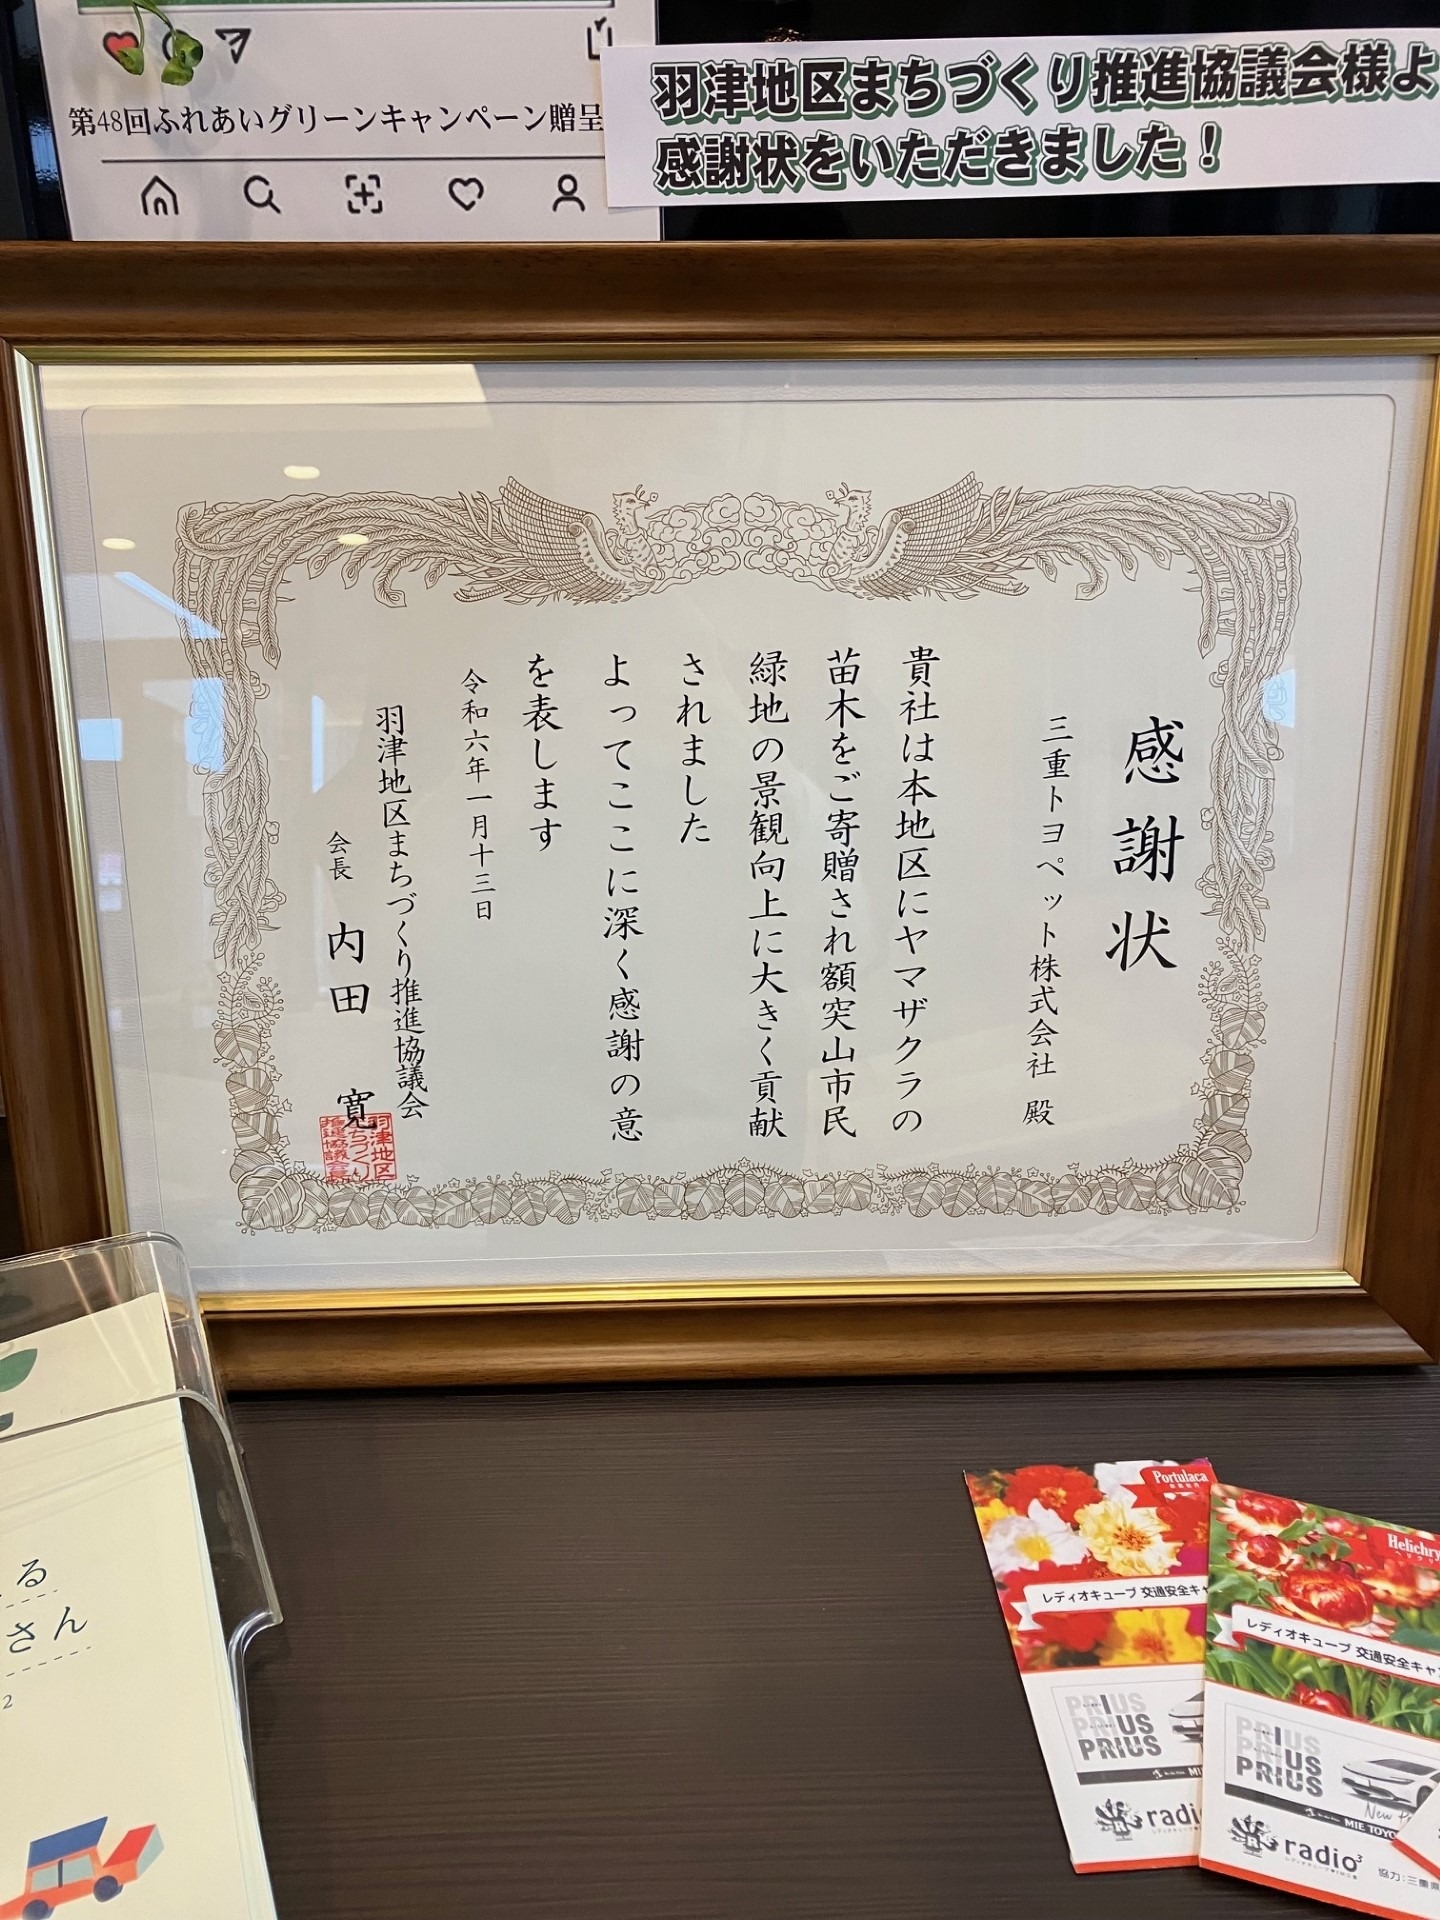 第48回ふれあいグリーンキャンペーン贈呈
羽津地区まちづくり推進協議会様よ
感謝状をいただきました！
感謝状
三重トヨペット株式会社 殿
貴社は本地区にヤマザクラの
苗木をご寄贈され額突山市民
緑地の景観向上に大きく貢献
されました
よってここに深く感謝の意
を表します
令和六年一月十三日
羽津地区まちづくり推進協議会
会長 内田 寛
羽津地区
まちづくり
推進協議会長
る
さん
2
Portulaca
レディオキューブ 交通安全キャ
PRIUS
PRIUS
PRIUS
MI
radi
Helichry
レディオキューブ 交通安全キャン
PRIUS
PRIUS
PRIUS
New Pr
MIE TOYO
radio3
協力:三重県